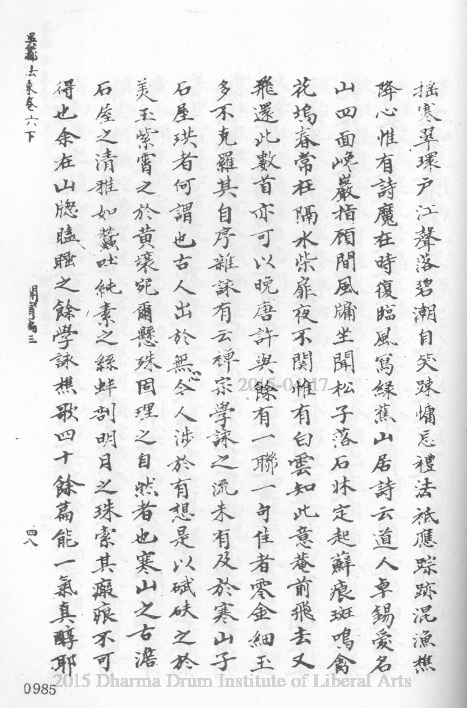 搖寒翠環戶江聲落碧潮自笑踈慵忘禮法祗應踪跡混漁樵
降心惟有詩魔在時復臨風寫綠蕉山居詩云道人卓錫愛名
山四面巉巖指顧間風牖坐聞松子落石牀定起蘚痕斑鳴禽
花塢春常在隔水柴扉夜不関惟有白雲知此意菴前飛去又
飛還此數首亦可以晚唐許與餘有一聯一句佳者零金細玉
多不克羅其自序雜詠有云禪宗學詠之流未有及於寒山子
石屋珙者何謂也古人出於無心今人涉於有想是以碔砆之於
美玉紫霄之於黃壤宛爾懸殊固理之自然者也寒山之古澹
石屋之清雅如蠶吐純素之絲蚌剖明月之珠索其瘢痕不可
得也余在山牕瞌之餘學詠樵歌四十餘篇能一氣真醇耶
吳都法乘卷六下
篇三
四八
0985
2015 Dharma Drum Institute of Liberal Arts